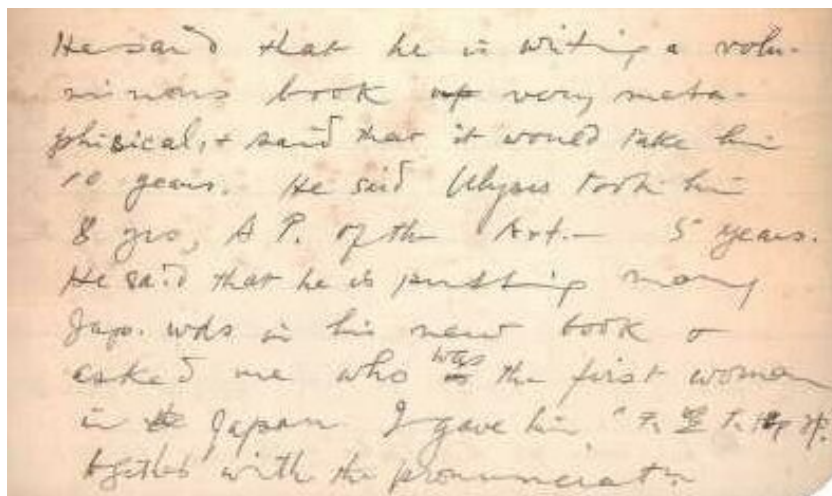 He said that he is writing a volu-
minous book very meta-
phisical, + said that it would take him
10 years. He said Ulyses took him
8 yrs, A P. of the Art. — 5 years.
He said that he is putting many
Jap. wds in his new book &
asked me who was the first woman
in Japan I gave him "
together with the pronunciat